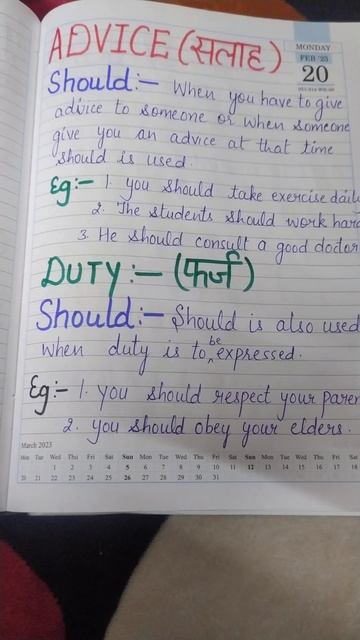 ADVICE (सलाह)
MONDAY
FEB '23
20
Should:- When you have to give
advice to someone or when someone
give you an advice at that time
should is used.
Eg:- 1. you should take exercise dail
2. The students should work har
3. He should consult a good doctor
DUTY:- (फर्ज)
Should:- Should is also used
when duty is to be expressed.
Eg:- 1. you should respect your paren
2. you should obey your elders.
March 2023
Mon Tue Wed Thu Fri Sat Sun Mon Tue Wed Thu Fri Sat Sun Mon Tue Wed Thu Fri Sat
1 2 3 4 5 6 7 8 9 10 11 12 13 14 15 16 17 18
20 21 22 23 24 25 26 27 28 29 30 31